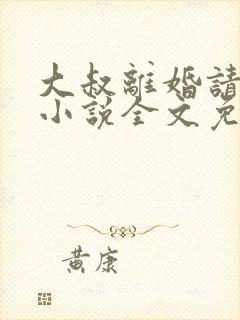 大叔離婚請
小說全文免
黃康